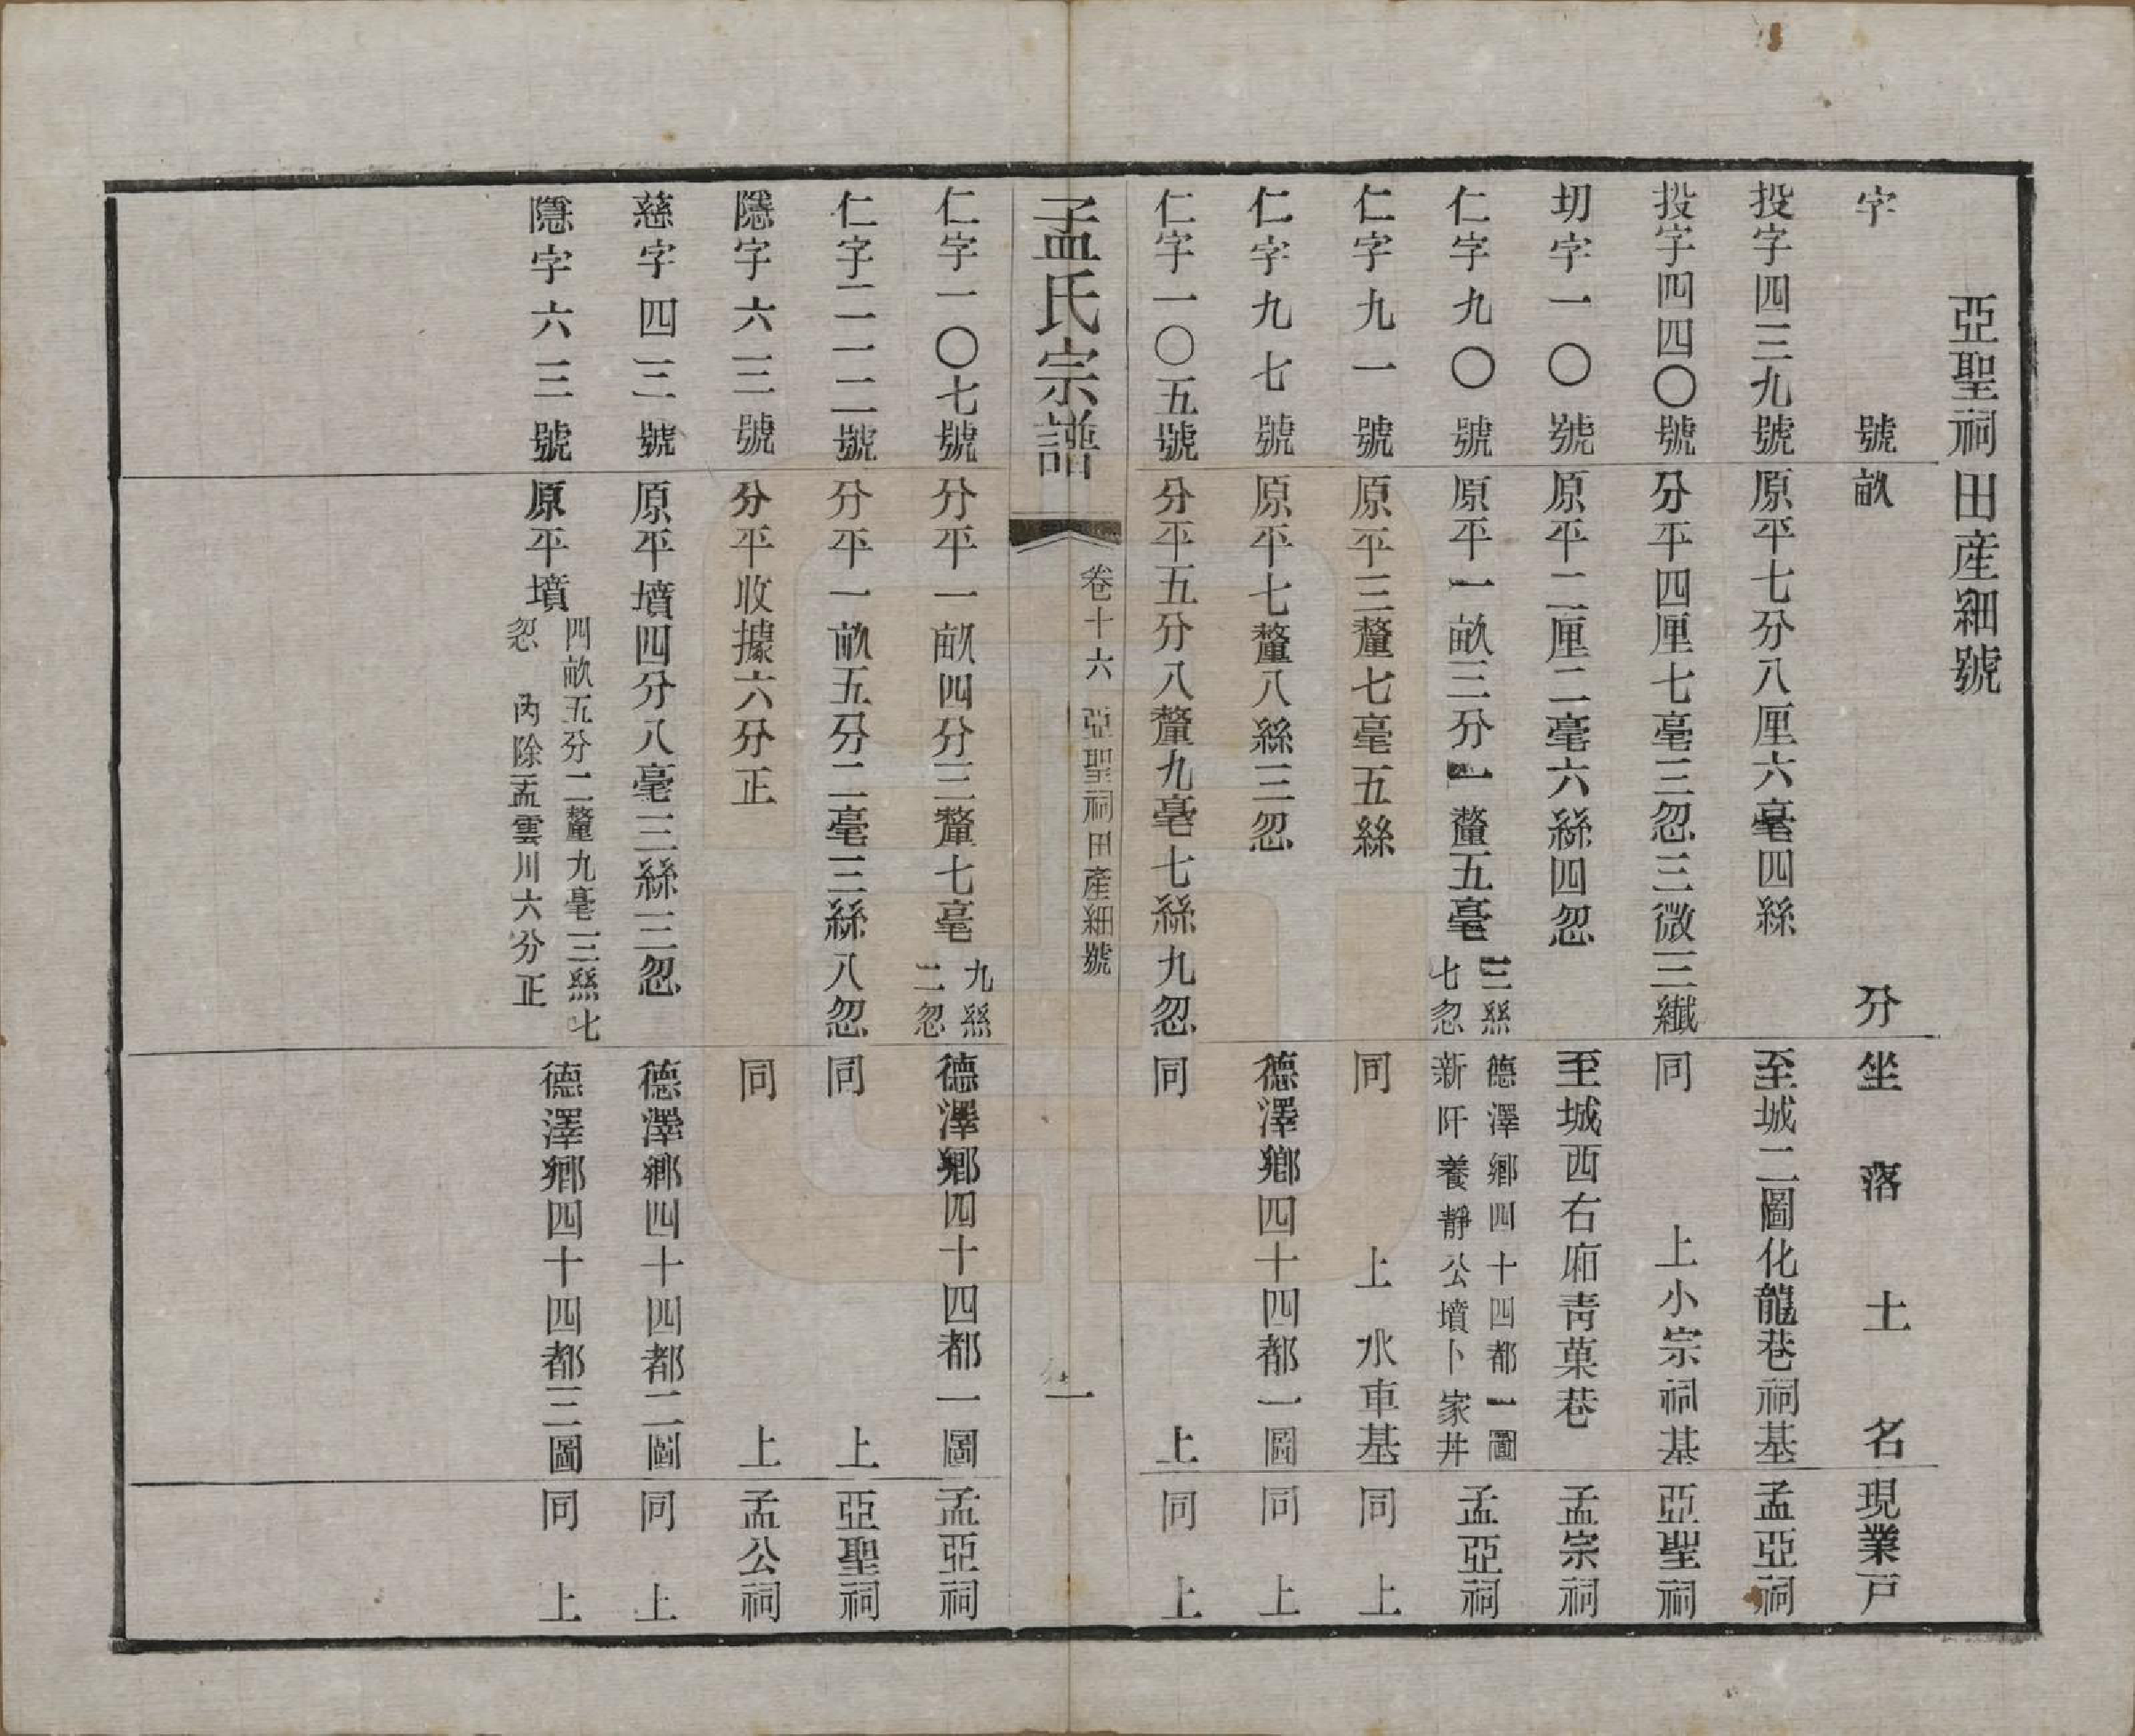 亞聖祠田產細號
字號 畝分 坐落土名 現業戸
投字四三九號 原平七分八厘六毫四絲 至城二圖化龍巷祠基 孟亞祠
投字四四〇號 分平四厘七毫三忽三微三纖 同上小宗祠基 亞聖祠
切字一〇號 原平二厘二毫六絲四忽 至城西右廂靑菓巷 孟宗祠
仁字九〇號 原平一畝三分一釐五毫三絲七忽 德澤鄉四十四都一圖新阡養靜公墳卜家丼 孟亞祠
仁字九一號 原平三釐七毫五絲 同上水車基 同上
仁字九七號 原平七釐八絲三忽 德澤鄉四十四都一圖 同上
仁字一〇五號 分平五分八釐九毫七絲九忽 同上 同上
孟氏宗譜 卷十六 亞聖祠田產細號 一
仁字一〇七號 分平一畝四分三釐七毫九絲二忽 德澤鄉四十四都一圖 孟亞祠
仁字二一一二號 分平一畝五分二毫三絲八忽 同上 亞聖祠
隱字六三號 分平收據六分正 同上 孟公祠
慈字四三號 原平墳四分八毫三絲三忽 德澤鄉四十四都二圖 同上
隱字六三號 原平墳四畝五分二釐九毫三絲七忽 內除孟雲川六分正 德澤鄉四十四都三圖 同上